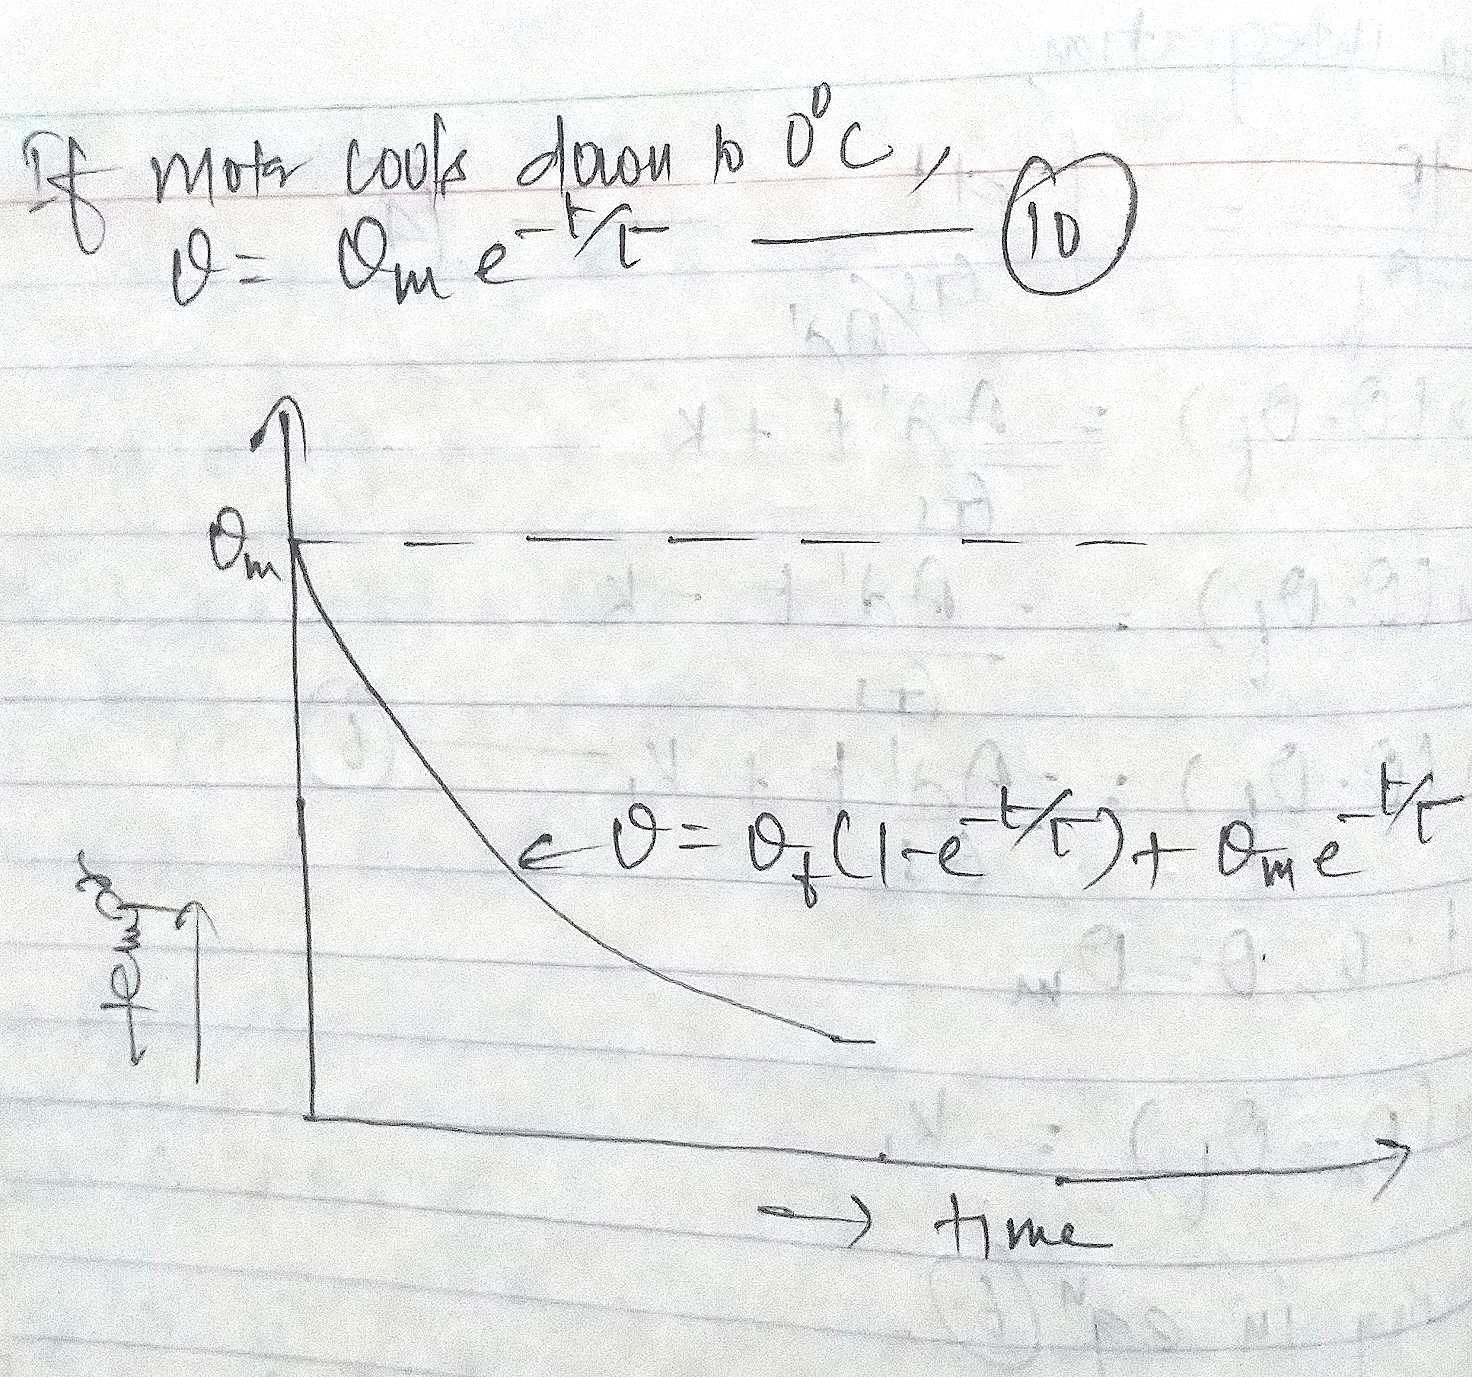 If motor cools down to 0°C,
θ = θm e^-t/τ —— (10)
θm
← θ = θf (1-e^-t/τ) + θm e^-t/τ
temp
→ time